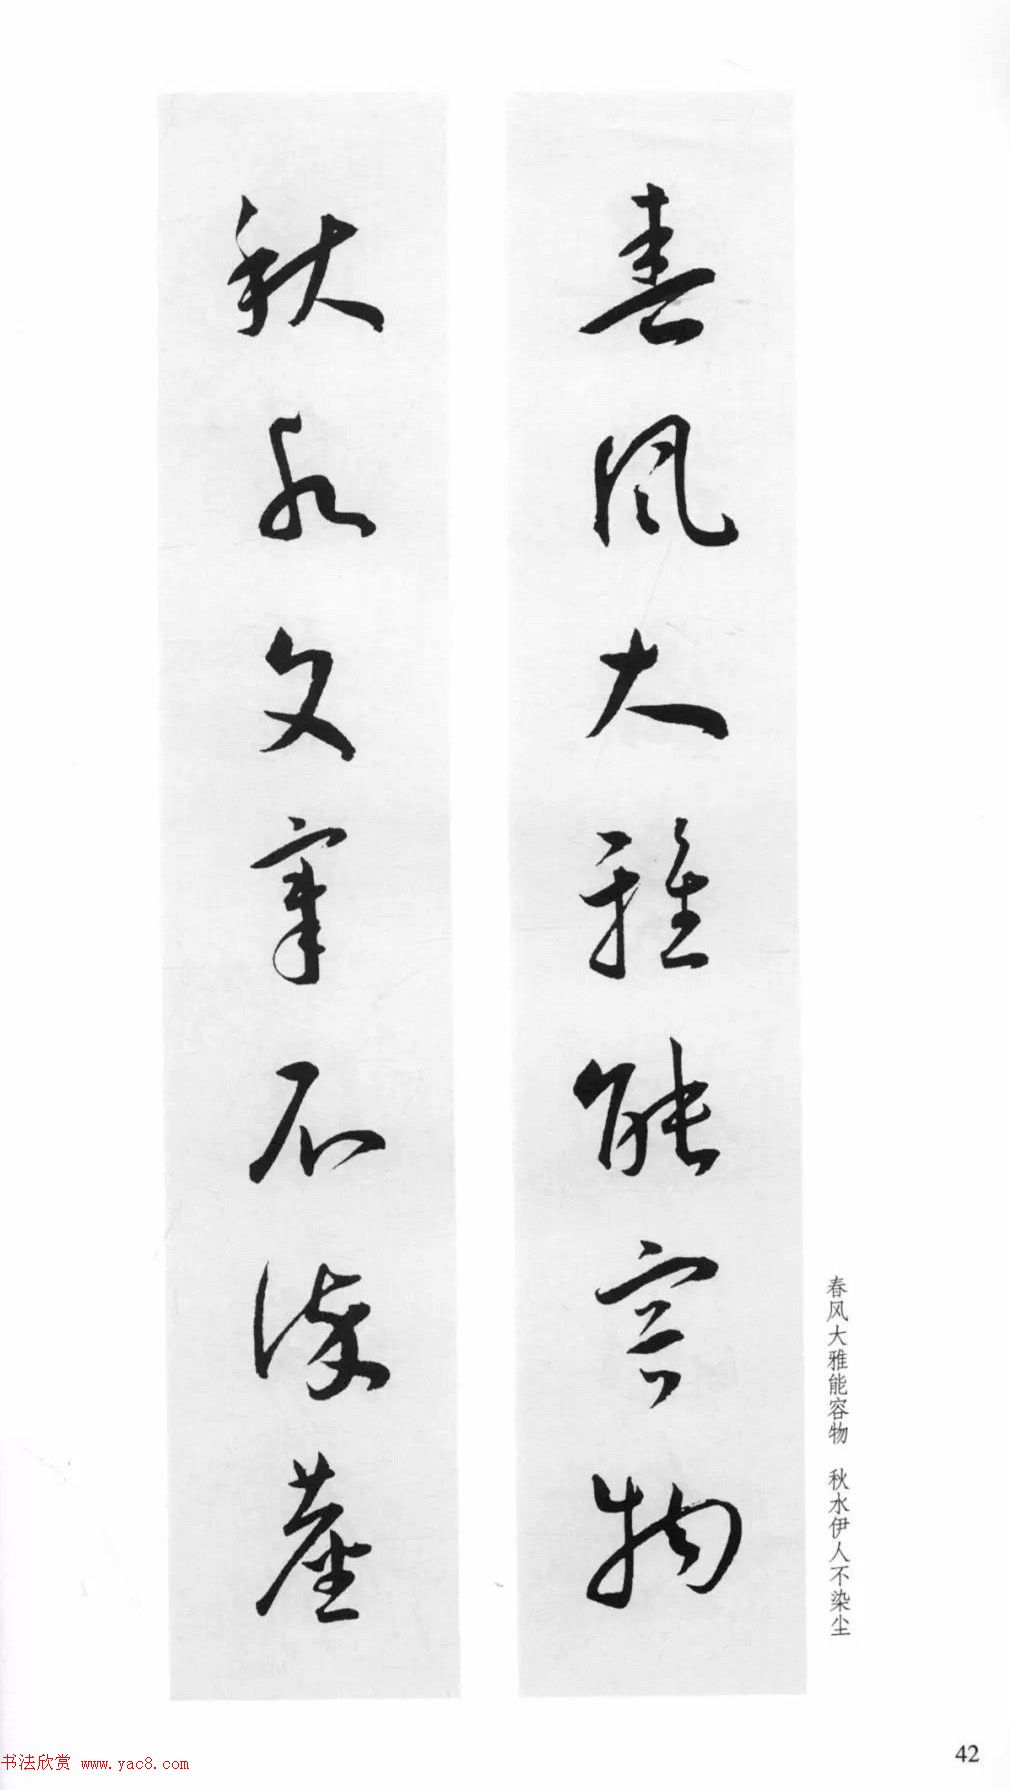 春風大雅能容物
秋水文章不染塵
春风大雅能容物 秋水伊人不染尘
书法欣赏 www.yac8.com
42